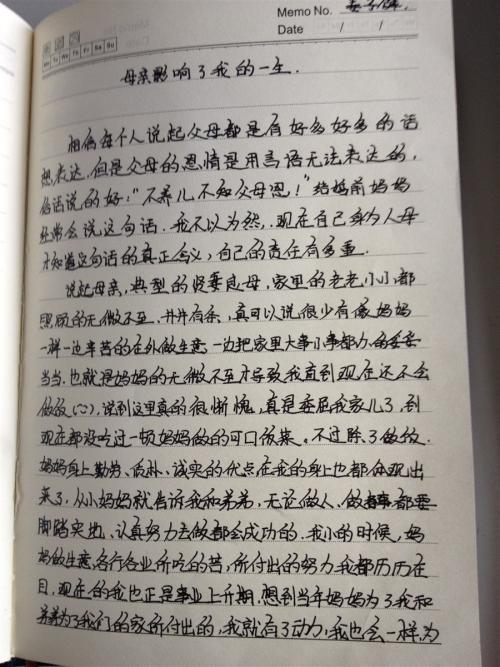 Memo No.
Mo Tu We Th Fr Sa Su
Date / /
母亲影响了我的一生.
相信每个人说起父母都是有好多好多的话
想表达,但是父母的恩情是用言语无法表达的,
俗话说的好:"不养儿不知父母恩!"结婚前妈妈
经常会说这句话.我不以为然,现在自己身为人母
才知道这句话的真正含义,自己的责任有多重.
说起母亲,典型的贤妻良母,家里的老老小小都
照顾的无微不至.井井有条,真可以说很少有像妈妈
一样一边辛苦的在外做生意一边把家里大事小事都办的妥妥
当当.也就是妈妈的无微不至才导致我直到现在还不会
做饭(~),说到这里真的很惭愧,真是委屈我家儿了,到
现在都没吃过一顿妈妈做的可口饭菜。不过除了做饭.
妈妈身上勤劳、俭朴、诚实的优点在我的身上也都体现出
来了.从小妈妈就告诉我和弟弟,无论做人、做事都要
脚踏实地、认真努力去做都会成功的.我小的时候,妈
妈做生意,各行各业所吃的苦,所付出的努力我都历历在
目,现在的我也正是事业上升期,想到当年妈妈为了我和
弟弟为了我们的家所付出的,我就有了动力,我也会一样,为